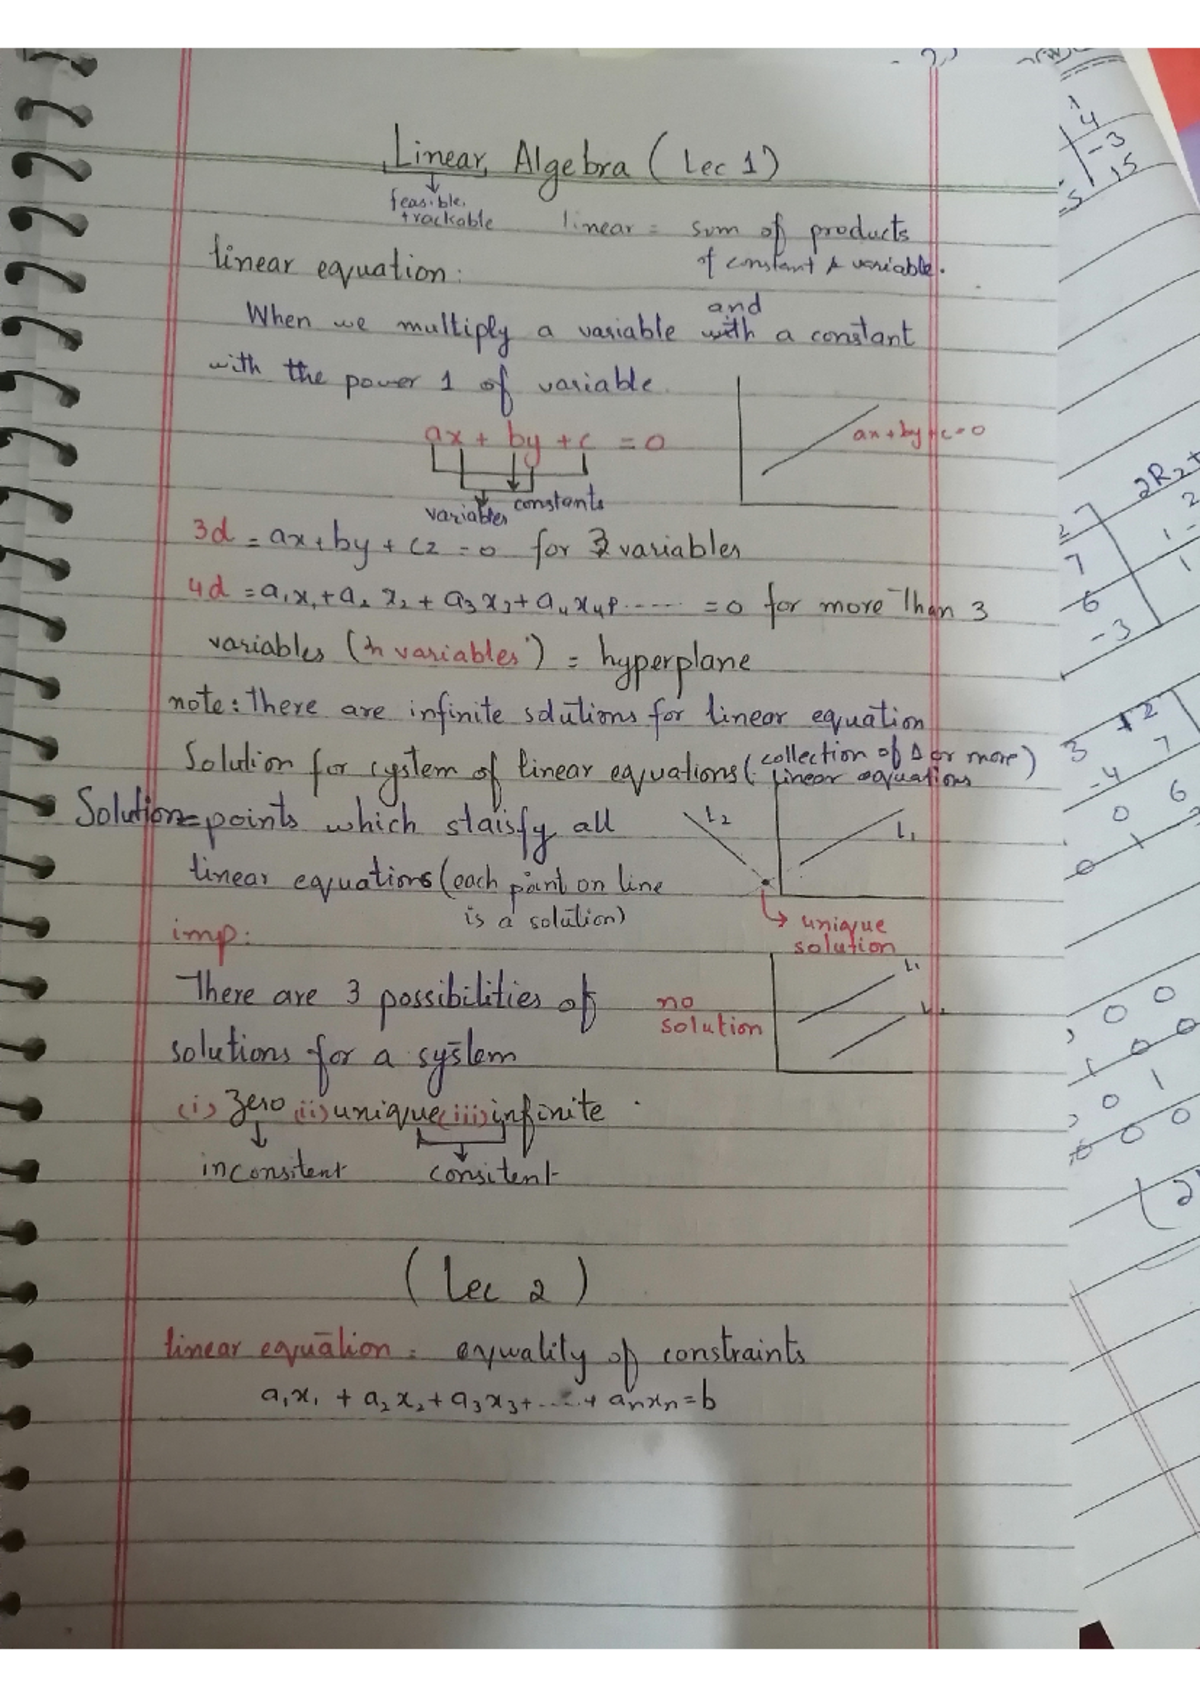 Linear Algebra (Lec 1)
feasible,
trackable
linear = sum of products
of constant & variable.
linear equation:
and
When we multiply a variable with a constant
with the power 1 of variable.
ax + by + c = 0
ax + by + c = 0
variables constants
3d = ax + by + cz = 0 for 3 variables
4d = a₁x₁ + a₂ x₂ + a₃x₃ + a₄x₄ + ...... = 0 for more than 3
variables (n variables) = hyperplane
note: There are infinite solutions for linear equation
Solution for system of linear equations (collection of 1 or more)
linear equations
Solution = points which staisfy all
L₂
L₁
linear equations (each point on line
is a solution)
unique
solution
imp:
L₁
There are 3 possibilities of
no
solution
solutions for a system
(i) Zero (ii) unique (iii) infinite
inconsitent consitent
(Lec 2)
linear equation = equality of constraints
a₁x₁ + a₂x₂ + a₃x₃ + ..... + aₙxₙ = b
1
4
-3
15
-5
2R₂+
7
6
-3
3 2
-4 7
0 6
0 1
0 0
1 0 0
0 1
0 0 0